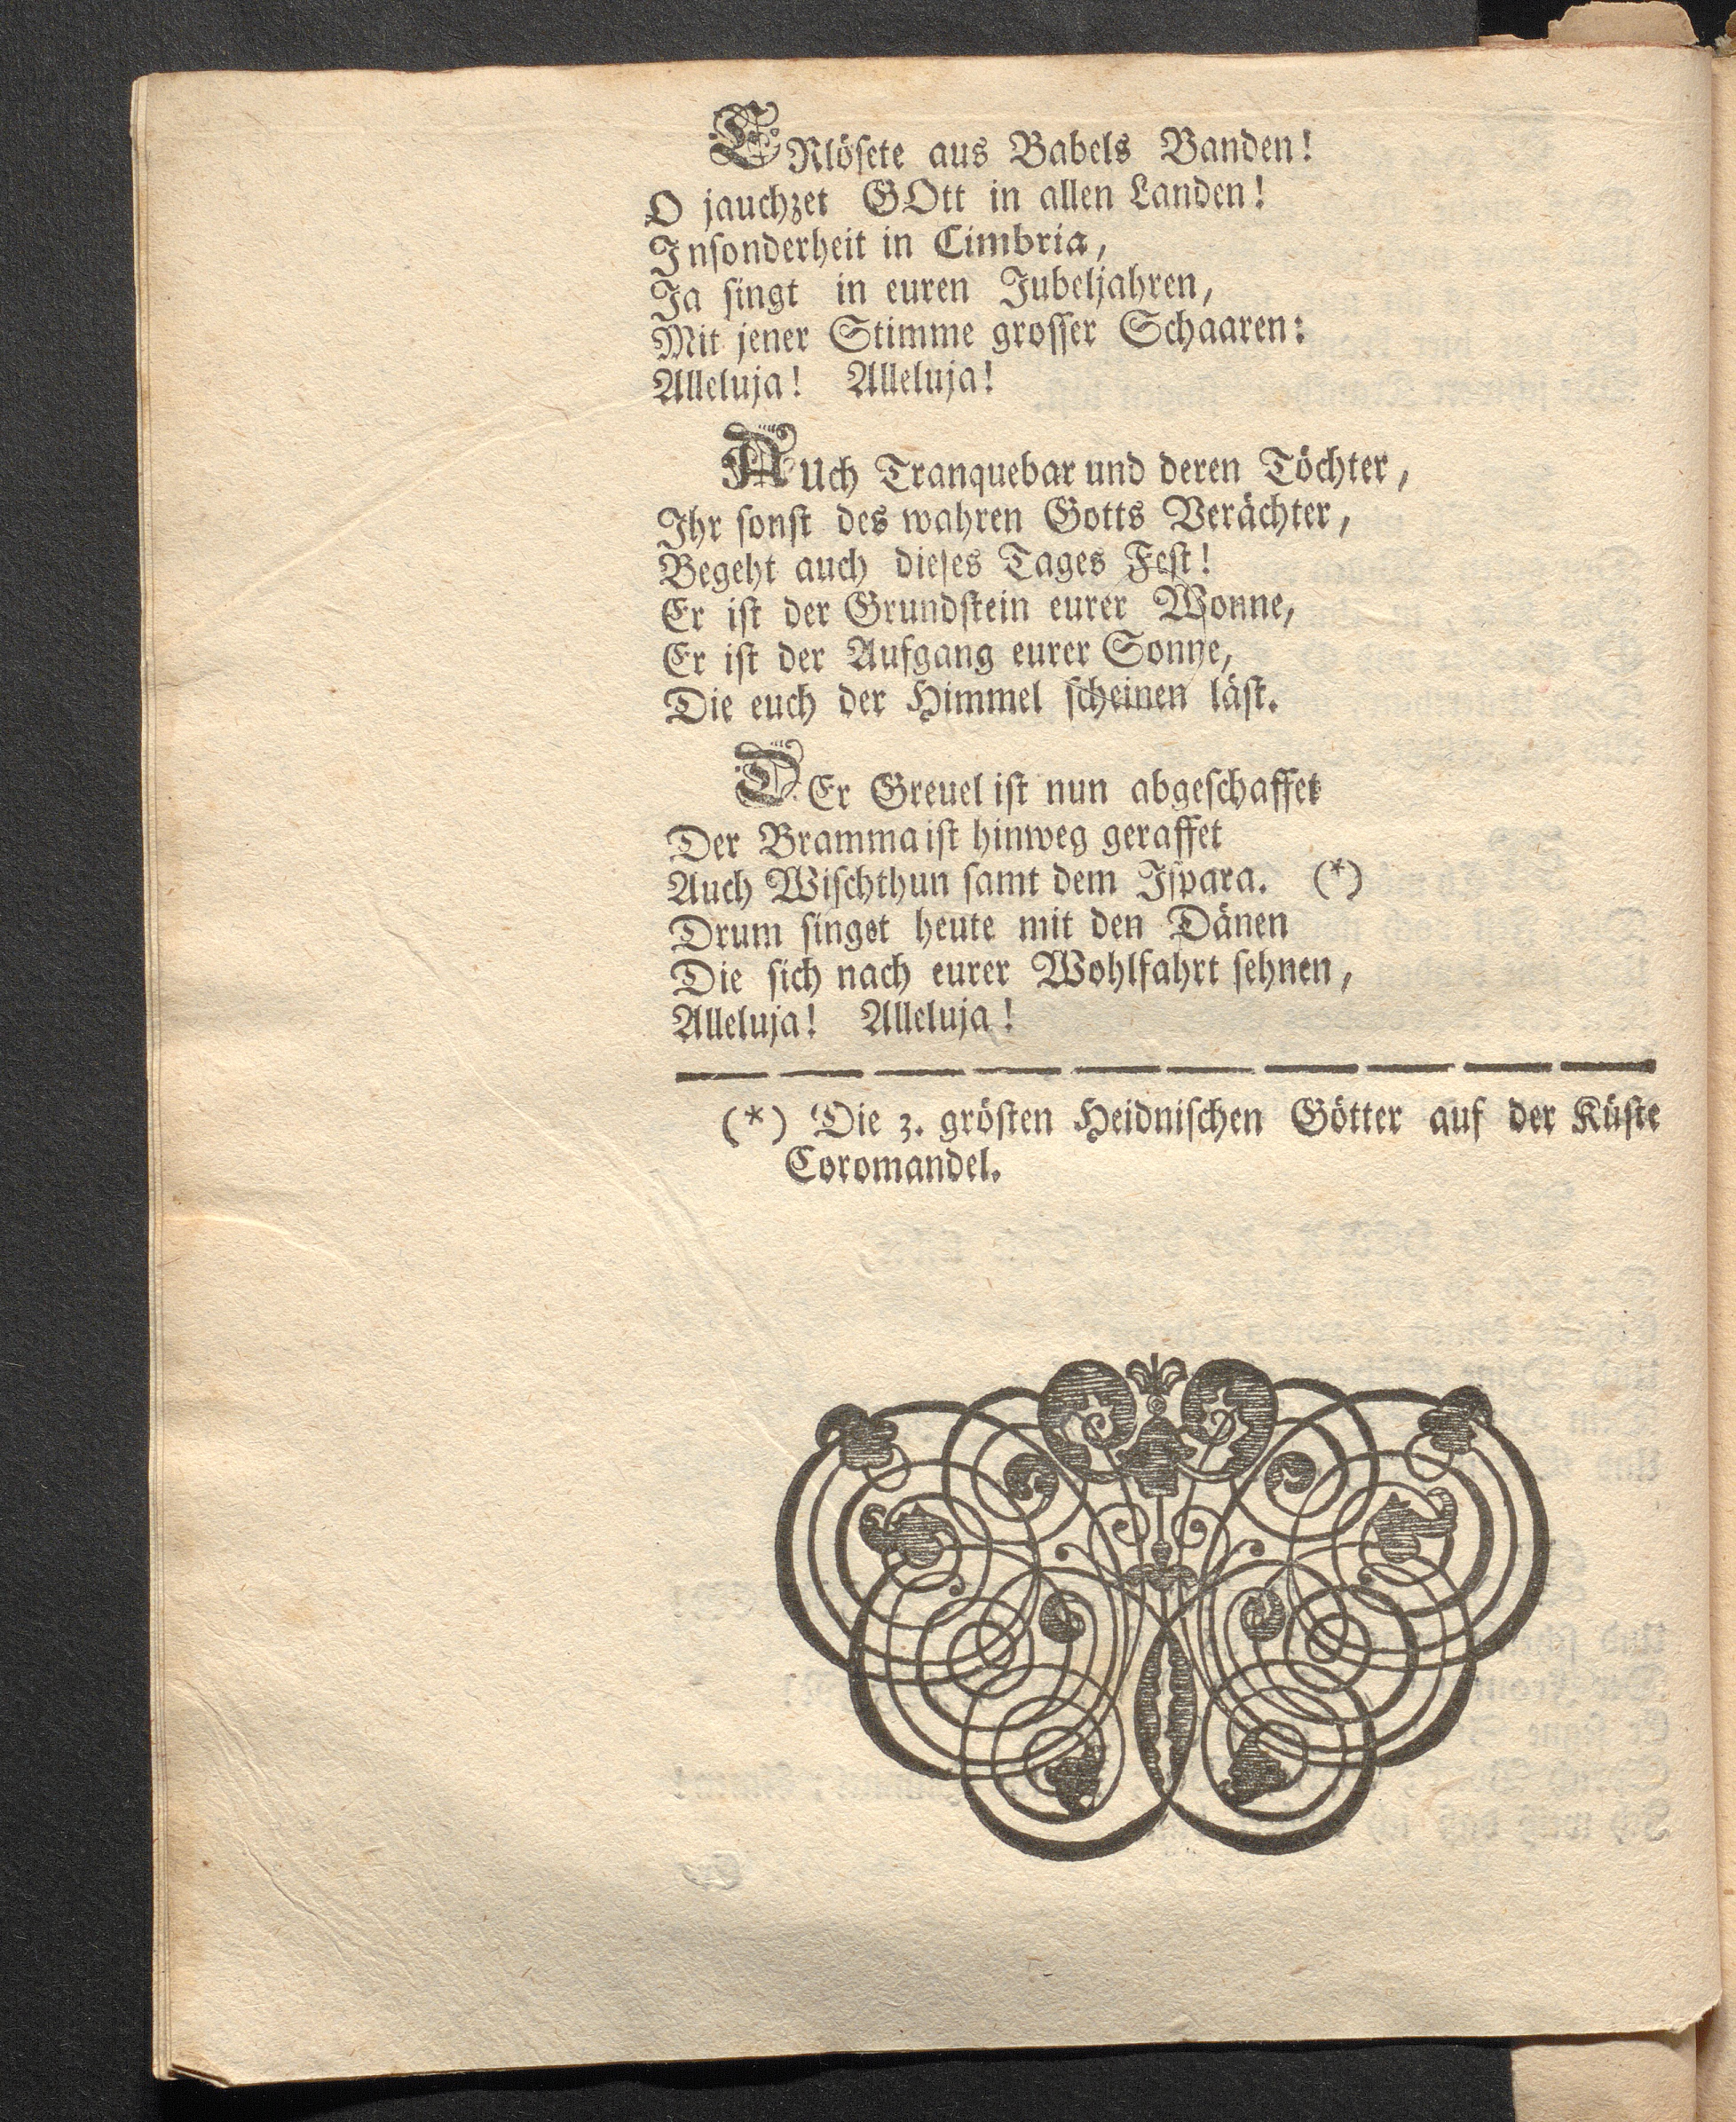 ERlösete aus Babels Banden!
O jauchzet GOtt in allen Landen!
Insonderheit in Cimbria,
Ja singt in euren Jubeljahren,
Mit jener Stimme grosser Schaaren:
Alleluja! Alleluja!
AUch Tranquebar und deren Töchter,
Ihr sonst des wahren Gotts Verächter,
Begeht auch dieses Tages Fest!
Er ist der Grundstein eurer Wonne,
Er ist der Aufgang eurer Sonne,
Die euch der Himmel scheinen läst.
DEr Greuel ist nun abgeschaffet
Der Bramma ist hinweg geraffet
Auch Wischthun samt dem Ispara. (*)
Drum singet heute mit den Dänen
Die sich nach eurer Wohlfahrt sehnen,
Alleluja! Alleluja!
(*) Die 3. grösten Heidnischen Götter auf der Küste
Coromandel.